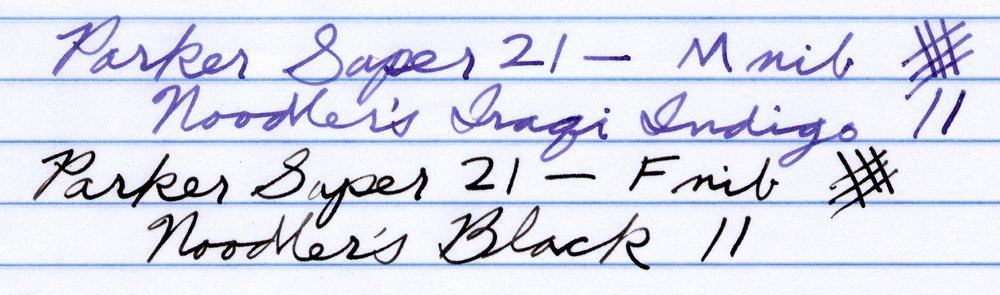 Parker Super 21 — M nib
Noodler's Iraqi Indigo 11
Parker Super 21 — F nib
Noodler's Black 11